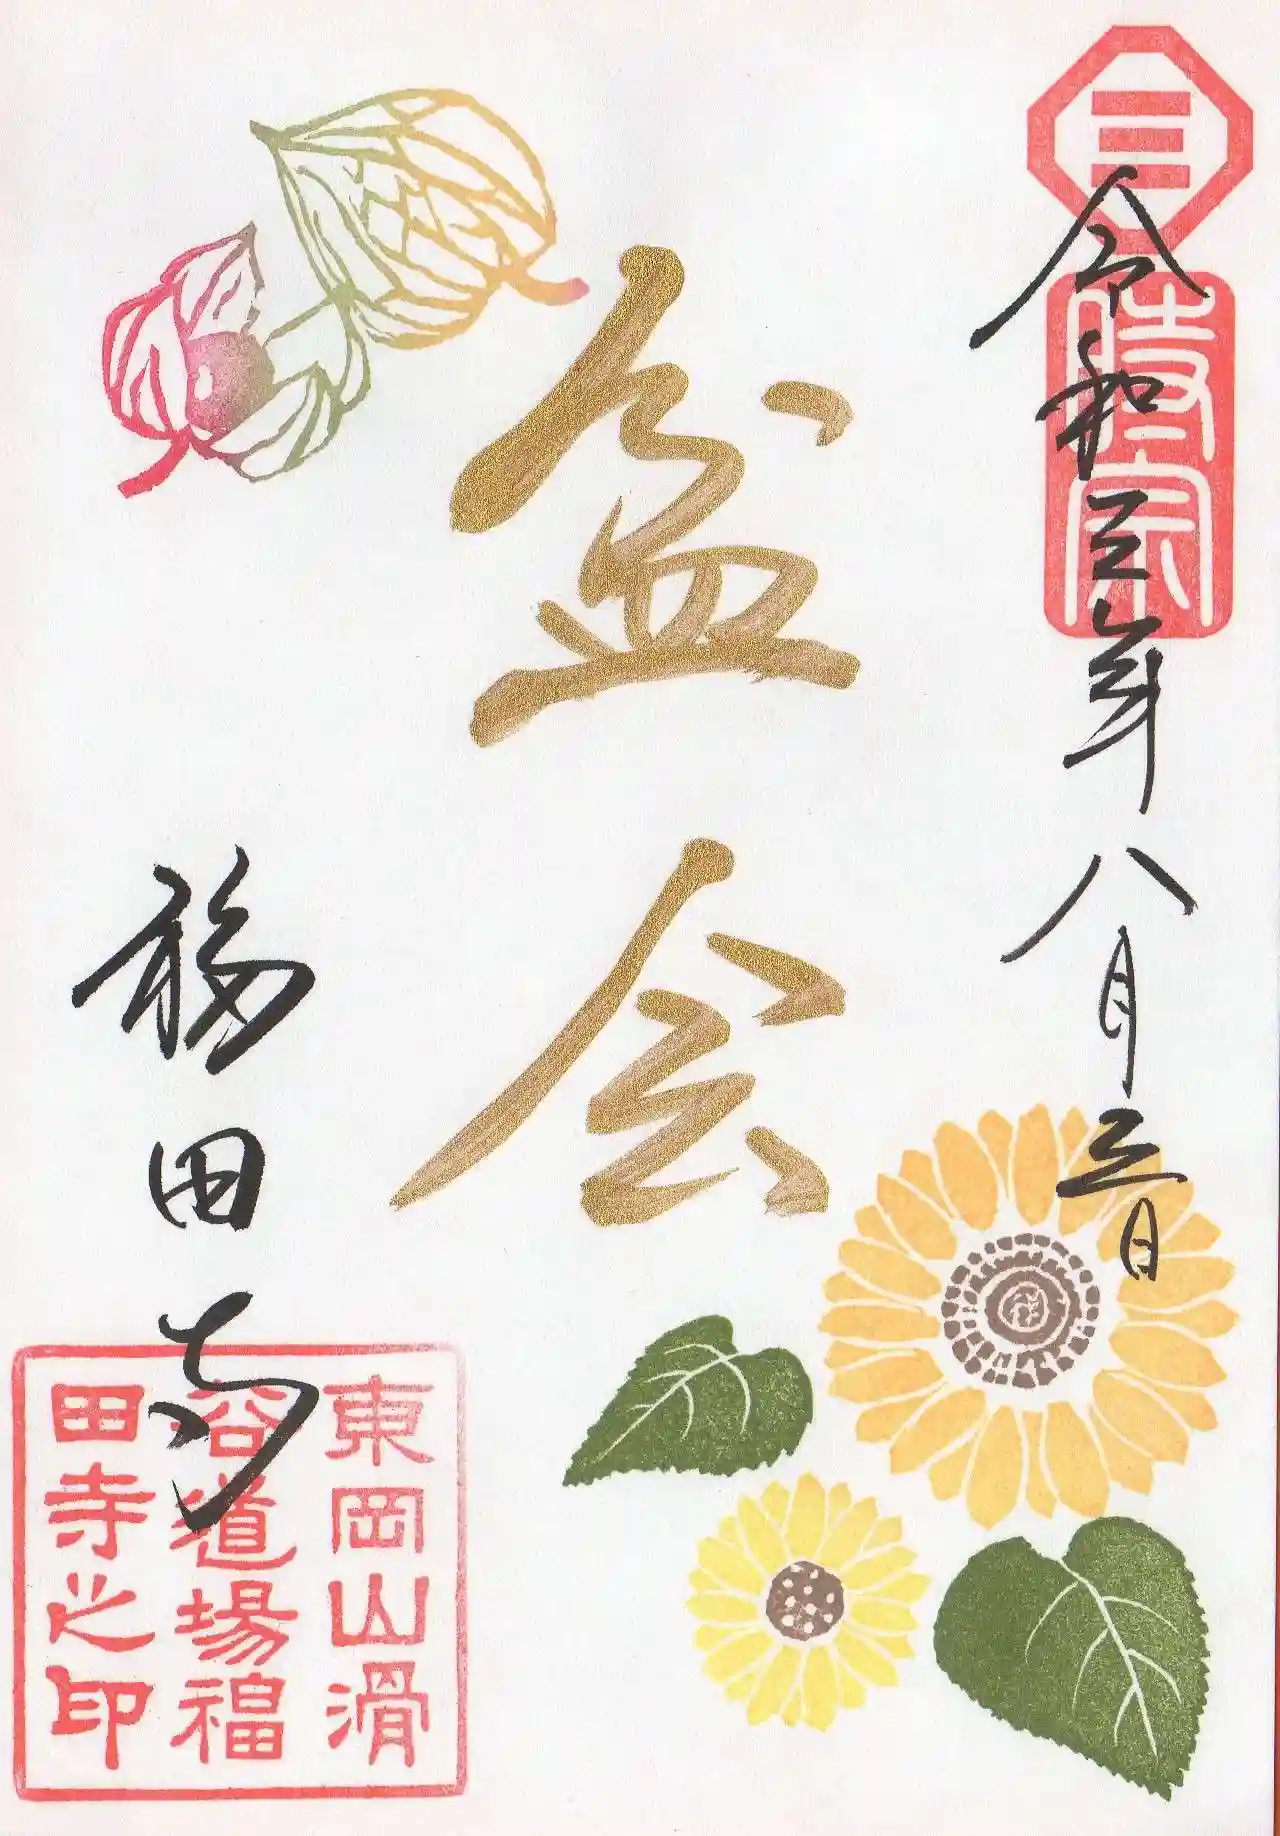 令和三年八月三日
時宗
盆会
福田寺
東岡山滑
谷道場福
田寺之印